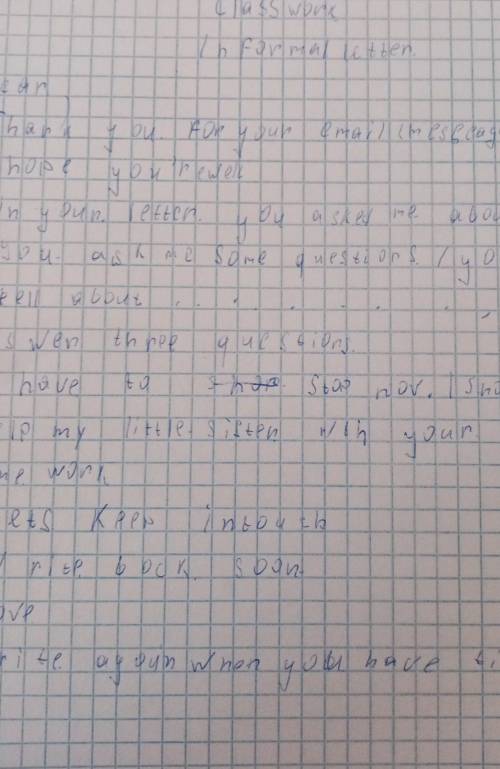 Classwork
Informal letter.
ear
hank you. For your email (message
hope you're well
n your. letter. you asked me abou
you. ask me some questions. / yo
ell about . . . . . . .
swer three questions.
have to stop nov. I sho
lp my little sister with your
me work
ets keep in touch
rite. back. soon.
ave
rite. again when you have ti